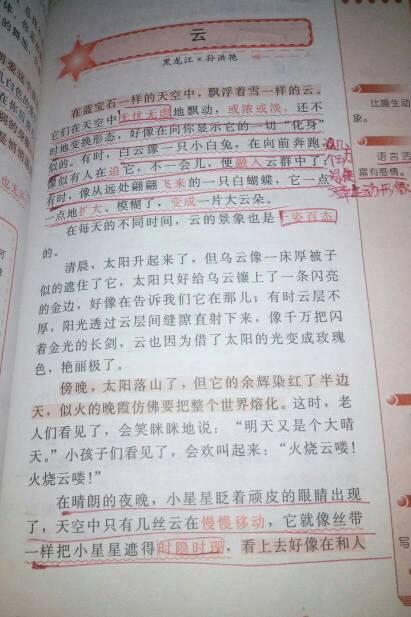 云
黑龙江 孙洪艳
在蓝宝石一样的天空中,飘浮着雪一样的云。
它们在天空中无忧无虑地飘动,或浓或淡,还不
时地变换形态,好像在向你显示它的一切“化身”
似的。有时,白云像一只小白兔,在向前奔跑,
像似有人在追它,不一会儿,便融入云群中了;
有时,像从远处翩翩飞来的一只白蝴蝶,它一点
一点地扩大、模糊了,变成一片大云朵。
在每天的不同时间,云的景象也是千姿百态
的。
清晨,太阳升起来了,但乌云像一床厚被子
似的遮住了它,太阳只好给乌云镶上了一条闪亮
的金边,好像在告诉我们它在那儿;有时云层不
厚,阳光透过云层间缝隙直射下来,像千万把闪
着金光的长剑,云也因为借了太阳的光变成玫瑰
色,艳丽极了。
傍晚,太阳落山了,但它的余辉染红了半边
天,似火的晚霞仿佛要把整个世界熔化。这时,老
人们看见了,会笑眯眯地说:“明天又是个大晴
天。”小孩子们看见了,会欢叫起来:“火烧云喽!
火烧云喽!”
在晴朗的夜晚,小星星眨着顽皮的眼睛出现
了,天空中只有几丝云在慢慢移动,它就像丝带
一样把小星星遮得时隐时现,看上去好像在和人
比喻生动
象。
语言活
富有感情。
写